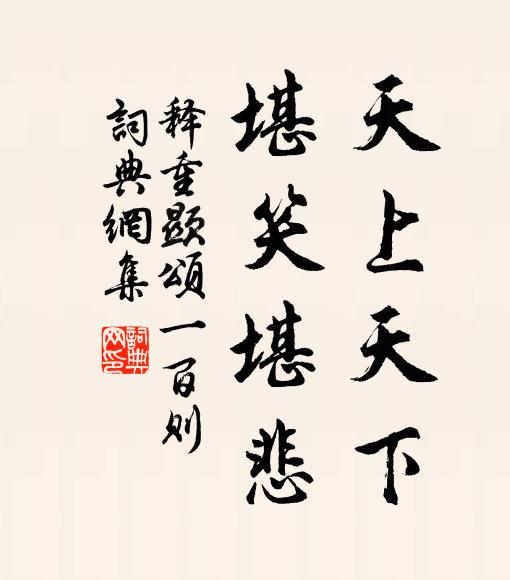 天上天下
堪笑堪悲
释重顯頌一百则
詞典網集
詞典网印